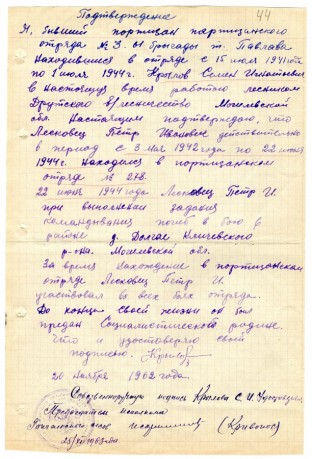 44
Подтверждение
Я, бывший портизан портизанского
отряда № 3. 61 бригады т. Павлова
Находившиеся в отряде с 15 июля 1941 года
по 1 июля 1944 г. Крылов Семен Игнатьевич
в настоящую время работаю лесником
Друтского лесничество Могилевской
обл. Настоящим подтверждаю, что
Лесковец Пётр Иванович действительно
в период с 3 мая 1942 года по 22 июня
1944 г. Находился в портизанском
отряде № 278.
22 июня 1944 года Лесковец Петр И.
при выполнении задания
командования погиб в бою в
районе д. Долгае Кличевского
р-она. Могилевской обл.
За время нахождение в портизанском
отряде Лесковец Петр И.
участвовал во всех боях отряда.
До конца своей жизни он был
предан Социалистической родине.
Что и удостоверяю своей
подписью.
20 ноября 1962 года.
подпись Крылова С. И.
Председатель
(Кривонос)